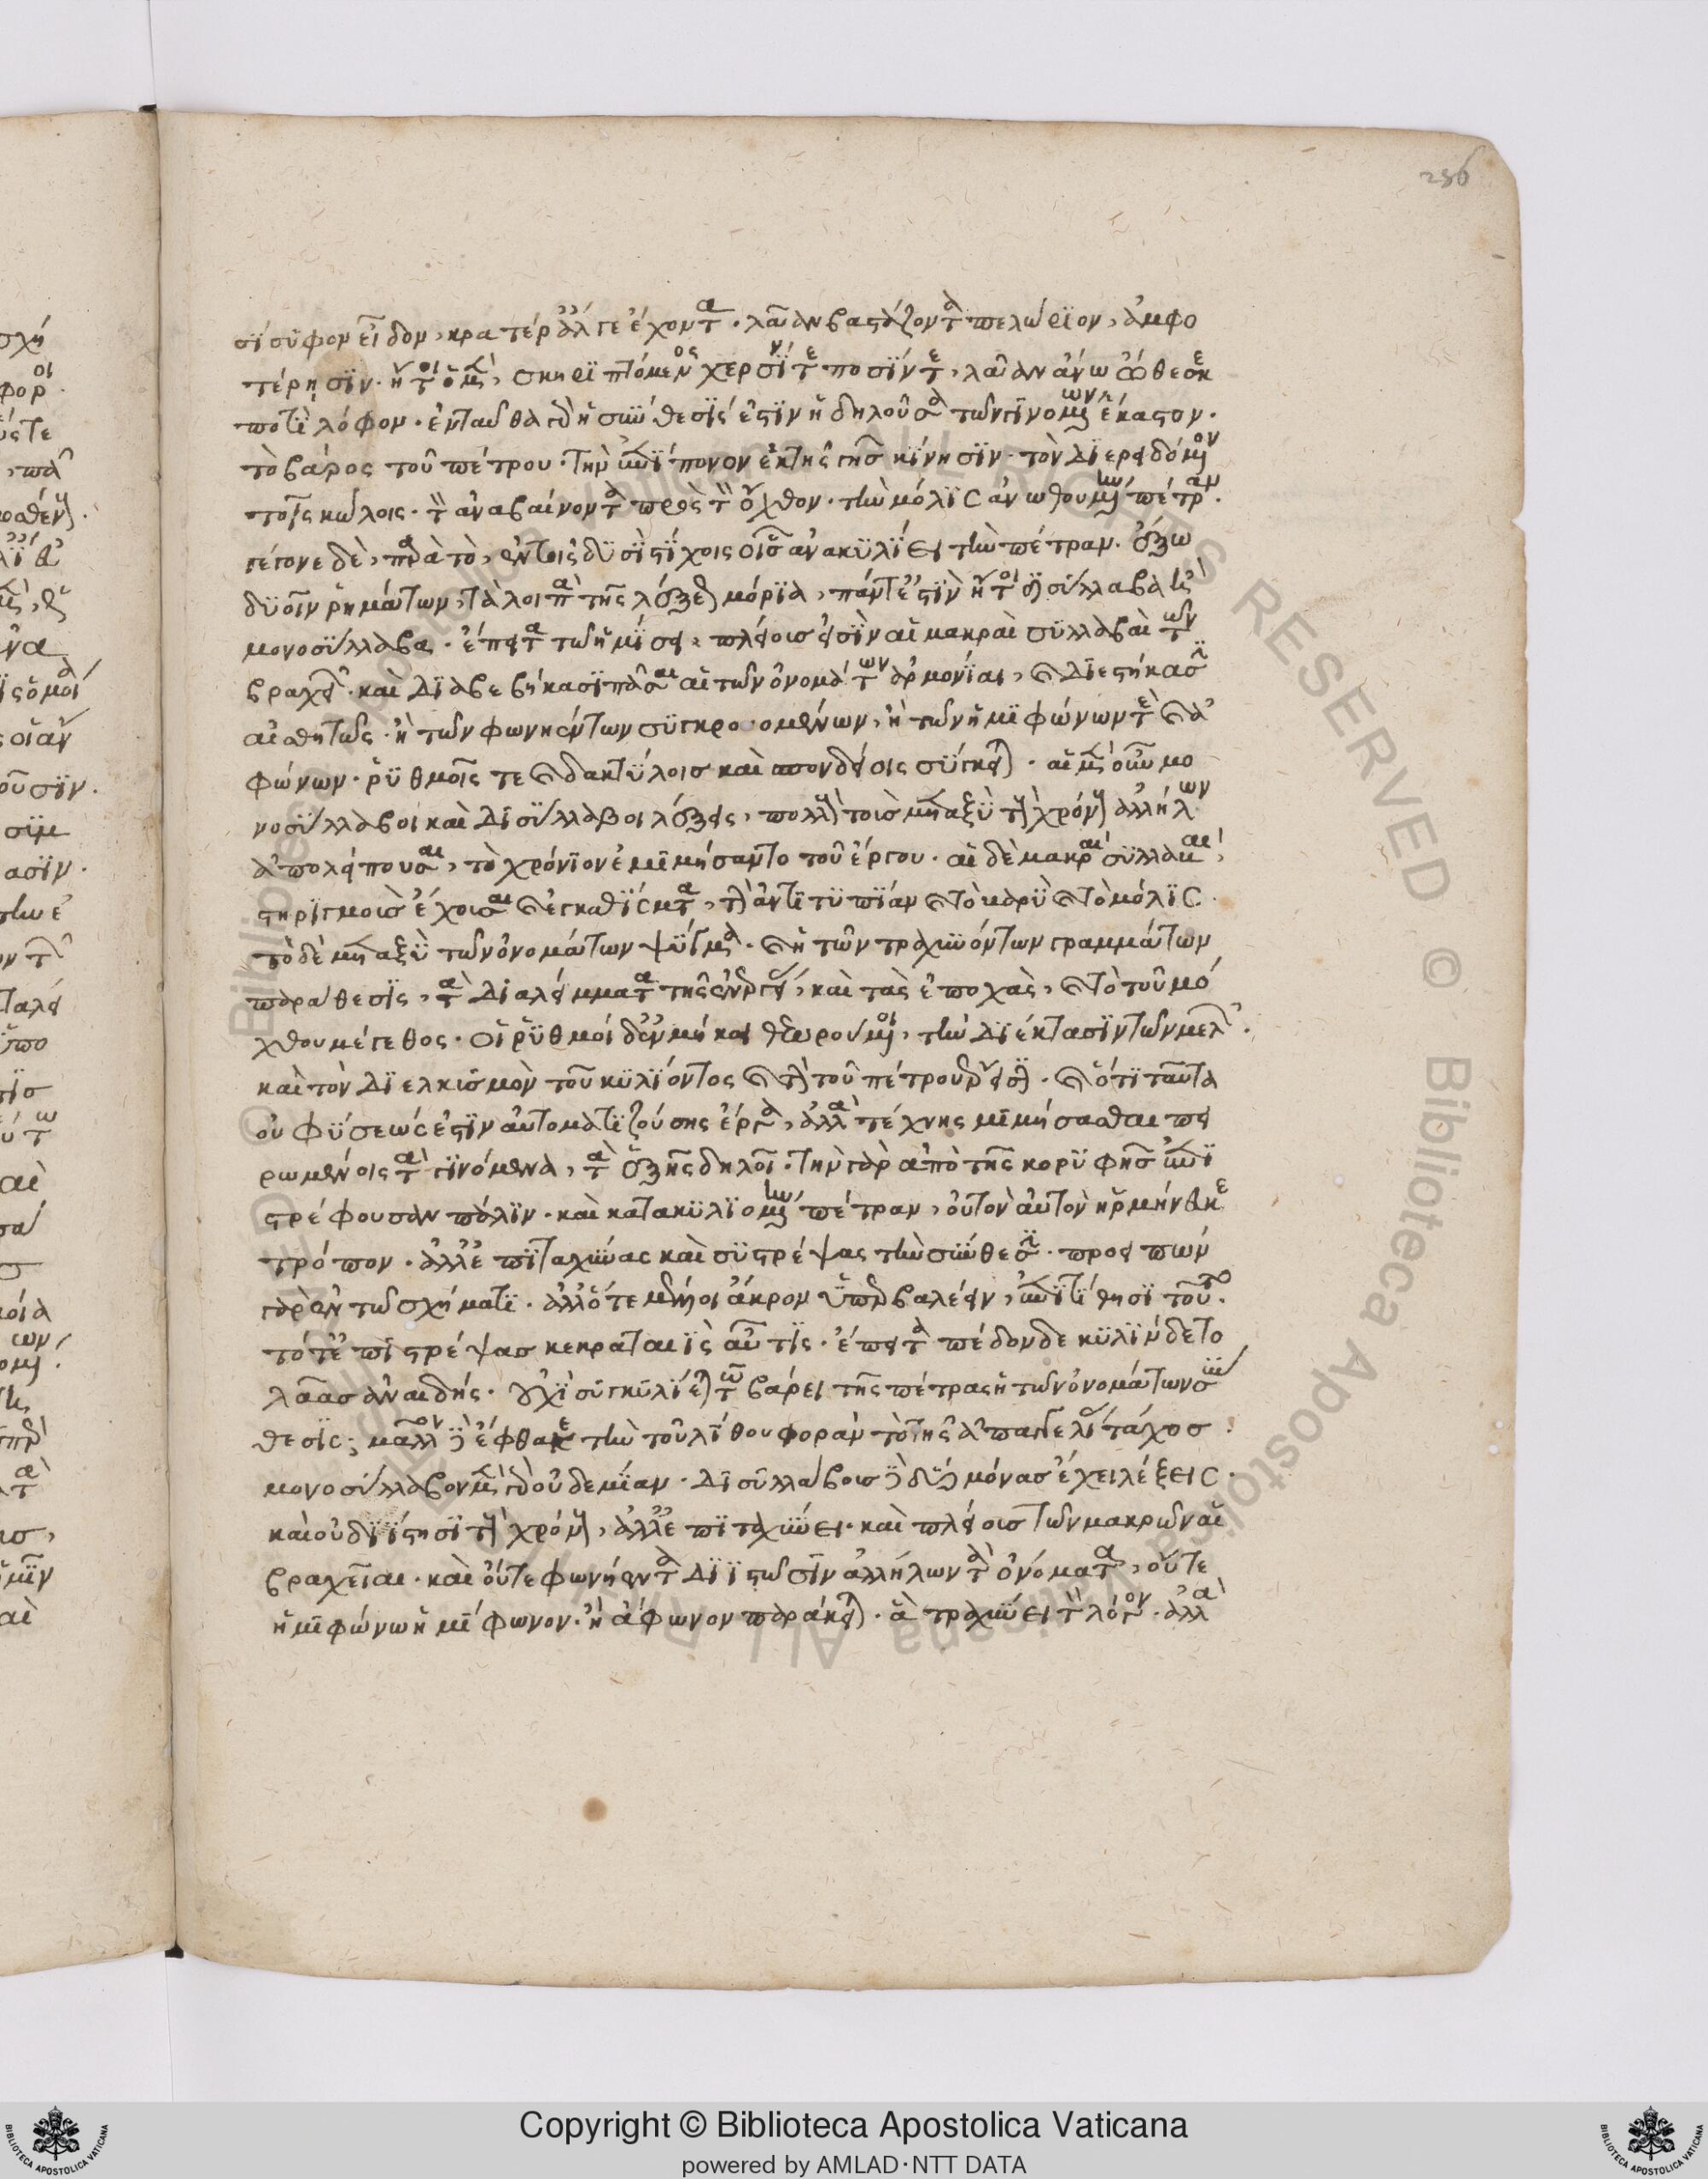 256
σίσυφον εἶδον, κρατέρ' ἄλγε' ἔχοντα. λᾶαν βαστάζοντα πελώριον, ἀμφο
τέρησιν. ἤτοι ὁ μὲν, σκηριπτόμενος χερσίν τε ποσίν τε, λᾶαν ἄνω ὤθεσκε
ποτὶ λόφον. ἐνταῦθα γὰρ ἡ σύνθεσίς ἐστιν ἡ δηλοῦσα τῶν γινομένων ἕκαστον.
τὸ βάρος τοῦ πέτρου. τὴν ἐπίπονον ἐκ τῆς γῆς κίνησιν. τὸν διερειδόμενον
τοῖς κώλοις. τὸν ἀναβαίνοντα πρὸς τὸν ὄχθον. τὴν μόλις ἀνωθουμένην πέτραν.
γέγονε δὲ, παρὰ τὸ, ἐν τοῖς δυσὶ στίχοις οἷς ἀνακυλίει τὴν πέτραν. ἔξω
δυοῖν ῥημάτων, τὰ λοιπὰ τῆς λέξεως μόρια, πάντ' ἐστὶν ἤτοι δισύλλαβα ἢ
μονοσύλλαβα. ἔπειτα τῷ ἡμίσει, πλείους εἰσὶν αἱ μακραὶ συλλαβαὶ τῶν
βραχειῶν. καὶ διαβεβήκασι πᾶσαι αἱ τῶν ὀνομάτων ἁρμονίαι, καὶ διεστήκασιν
αἰσθητῶς. ἢ τῶν φωνηέντων συγκρουομένων, ἢ τῶν ἡμιφώνων τε καὶ ἀ
φώνων. ῥυθμοῖς τε καὶ δακτύλοις καὶ σπονδείοις σύγκειται. αἱ μὲν οὖν μο
νοσύλλαβοι καὶ δισύλλαβοι λέξεις, πολλοὺς τοὺς μεταξὺ χρόνους ἀλλήλων
ἀπολείπουσαι, τὸ χρόνιον ἐμιμήσαντο τοῦ ἔργου. αἱ δὲ μακραὶ συλλαβαὶ,
στηριγμοὺς ἔχουσαι καὶ ἐγκαθίσματα, τὴν ἀντιτυπίαν καὶ τὸ βαρὺ καὶ τὸ μόλις.
τὸ δὲ μεταξὺ τῶν ὀνομάτων ψύγμα. καὶ ἡ τῶν τραχυνόντων γραμμάτων
παράθεσις, τὰ διαλείμματα τῆς ἐνεργείας, καὶ τὰς ἐποχὰς, καὶ τὸ τοῦ μό
χθου μέγεθος. οἱ ῥυθμοὶ δ' ἐν μήκει θεωρούμενοι, τὴν δὲ ἔκτασιν τῶν μελῶν.
καὶ τὸν διελκισμὸν τοῦ κυλίοντος καὶ τὴν τοῦ πέτρου ἔρεισιν. καὶ ὅτι ταῦτα
οὐ φύσεώς ἐστιν αὐτοματιζούσης ἔργα, ἀλλὰ τέχνης μιμήσασθαι πει
ρωμένης τὰ γινόμενα, τὰ ἑξῆς δηλοῖ. τὴν γὰρ ἀπὸ τῆς κορυφῆς ἐπι
στρέφουσαν πάλιν. καὶ κατακυλιομένην πέτραν, οὐ τὸν αὐτὸν ἡρμήνευκε
τρόπον. ἀλλ' ἐπιταχύνας καὶ συστρέψας τὴν σύνθεσιν. προσειπὼν
γὰρ ἐν τῷ σχήματι. ἀλλ' ὅτε μέλλοι ἄκρον ὑπερβαλέειν, ἐπιτίθησι τοῦτο.
τότ' ἐπιστρέψασκε κραταιῒς αὖτις. ἔπειτα πέδονδε κυλίνδετο
λᾶας ἀναιδής. οὐχὶ συγκυλίεται τῷ βάρει τῆς πέτρας ἡ τῶν ὀνομάτων σύν
θεσις; μᾶλλον δὲ ἔφθακε τὴν τοῦ λίθου φορὰν τὸ τῆς ἀπαγγελίας τάχος.
μονοσύλλαβον μὲν γὰρ οὐδεμίαν. δισυλλάβους δὲ δύο μόνας ἔχει λέξεις.
καὶ οὐ διίστησι τοὺς χρόνους, ἀλλ' ἐπιταχύνει. καὶ πλείους τῶν μακρῶν αἱ
βραχεῖαι. καὶ οὔτε φωνήεντα διιστῶσιν ἀλλήλων τὰ ὀνόματα, οὔτε
ἡμιφώνῳ ἡμίφωνον. ἢ ἄφωνον παράκειται. ἃ τραχύνει τὸν λόγον. ἀλλὰ
© Biblioteca Apostolica Vaticana ALL RIGHTS RESERVED
Copyright © Biblioteca Apostolica Vaticana
powered by AMLAD·NTT DATA
BIBLIOTECA APOSTOLICA VATICANA
BIBLIOTECA APOSTOLICA VATICANA